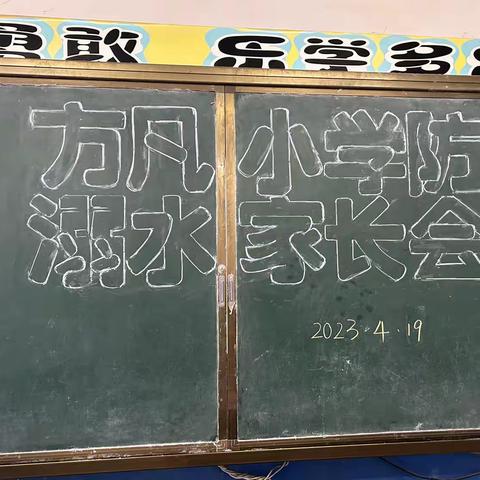 勇敢 乐学多
方凡小学防
溺水家长会
2023.4.19